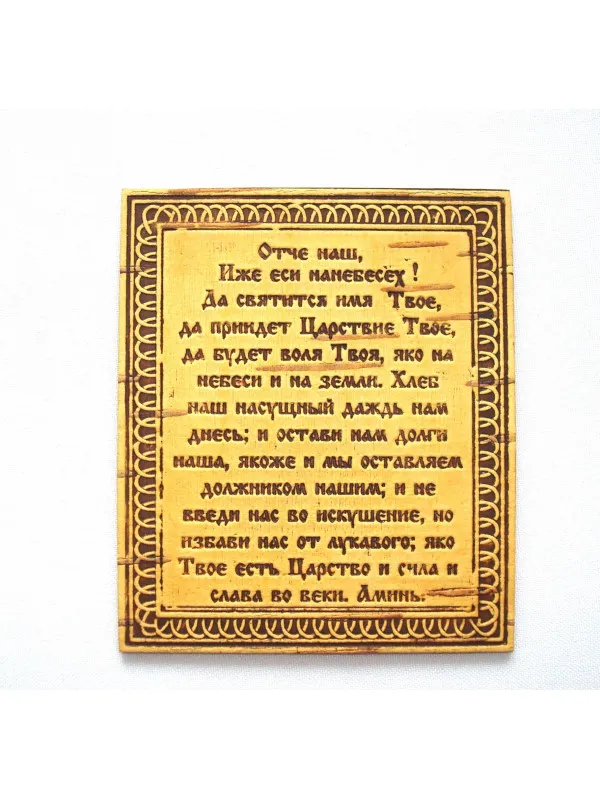 Отче наш,
Иже еси нанебесех!
Да святится имя Твое,
да приидет Царствие Твое,
да будет воля Твоя, яко на
небеси и на земли. Хлеб
наш насущный даждь нам
днесь; и остави нам долги
наша, якоже и мы оставляем
должником нашим; и не
введи нас во искушение, но
избави нас от лукавого; яко
Твое есть Царство и сила и
слава во веки. Аминь.